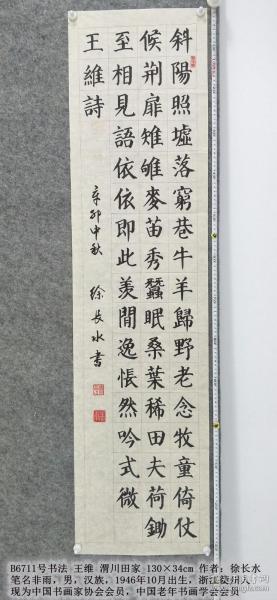 斜陽照墟落窮巷牛羊歸野老念牧童倚仗
候荆扉雉雊麥苗秀蠶眠桑葉稀田夫荷鋤
至相見語依依即此羡閒逸悵然吟式微
王維詩
辛卯中秋 徐長水書
B6711号书法 王维 渭川田家 130×34cm 作者：徐长水
笔名非雨，男，汉族，1946年10月出生，浙江衢州人，
现为中国书画家协会会员，中国老年书画学会会员